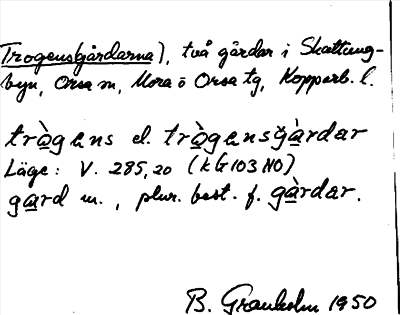 Trogens(gårdarna), två gårdar i Skattung-
byn, Orsa sn, Mora o Orsa tg, Kopparb. l.
tròg̀ens el. trògensgàrdar
Läge: V. 285,20 (kG103NO)
gard m., plur. best. f. gàrdar.
B. Granholm 1950